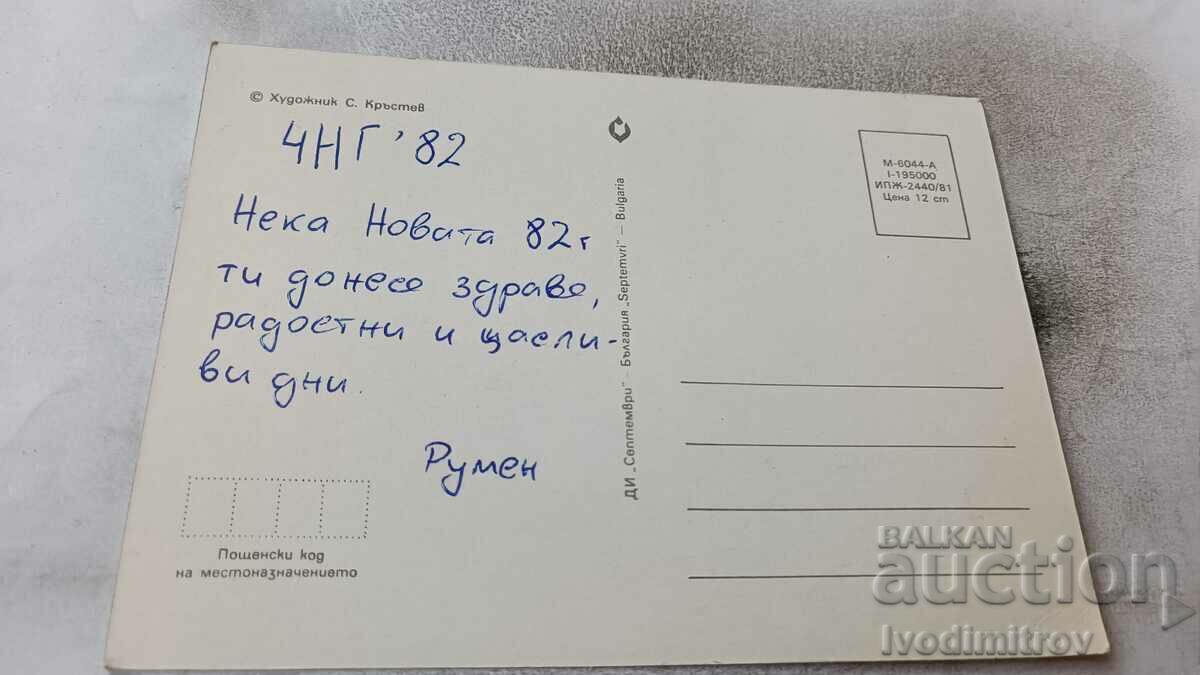 © Художник С. Кръстев
ЧНГ '82
Нека Новата 82г
ти донесе здраве,
радостни и щасли-
ви дни.
Румен
Пощенски код
на местоназначението
ДИ „Септември" – България „Septemvri" – Bulgaria
М-6044-А
I-195000
ИПЖ-2440/81
Цена 12 ст
BALKAN
auction
Ivodimitrov